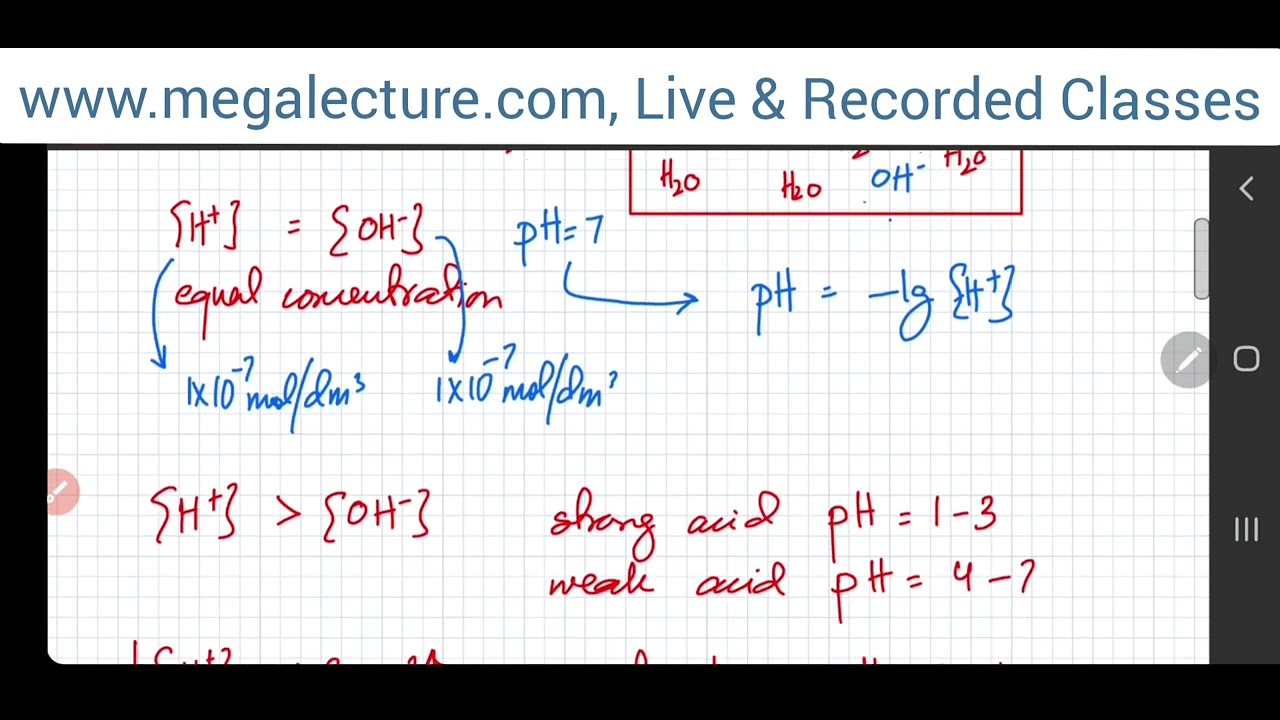 www.megalecture.com, Live & Recorded Classes
H₂O H₂O OH⁻ H₂O
{H⁺} = {OH⁻} pH = 7
equal concentration pH = -lg {H⁺}
1×10⁻⁷ mol/dm³ 1×10⁻⁷ mol/dm³
{H⁺} > {OH⁻} strong acid pH = 1-3
weak acid pH = 4-7